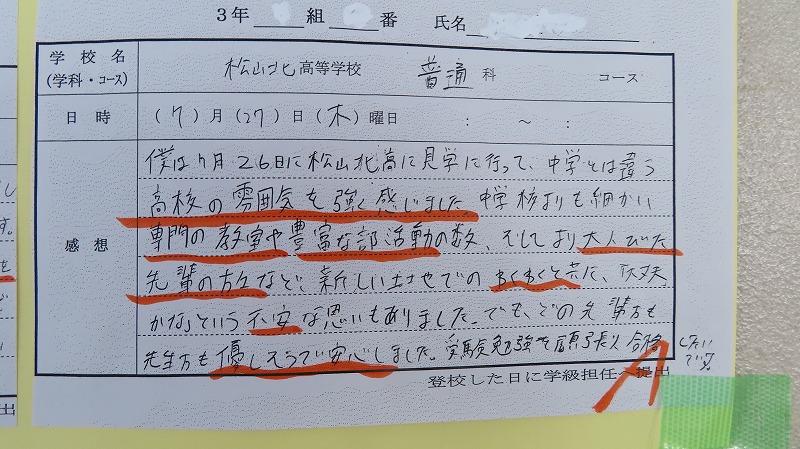 3年 組 番 氏名
学校名 (学科・コース) 松山北高等学校 普通科 コース
日時 (7)月(27)日(木)曜日 : ～ :
感想
僕は7月26日に松山北高に見学に行って、中学とは違う
高校の雰囲気を強く感じました。中学校よりも細かい
専門の教室や豊富な部活動の数、そしてより大人びた
先輩の方々など、新しい土地でのわくわくとまた、「大丈夫
かな」という不安な思いもありました。でも、どの先輩方も
先生方も優しそうで安心しました。受験勉強を頑張り合格したいです。
登校した日に学級担任へ提出